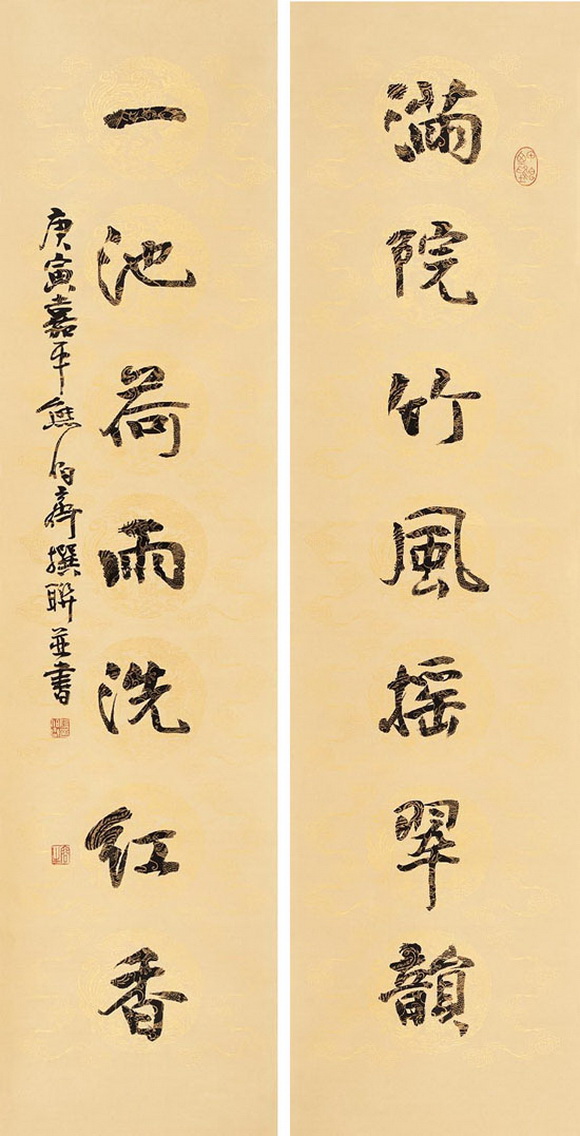 滿院竹風摇翠韻
一池荷雨洗紅香
庚寅嘉平熊伯齊撰聯並書